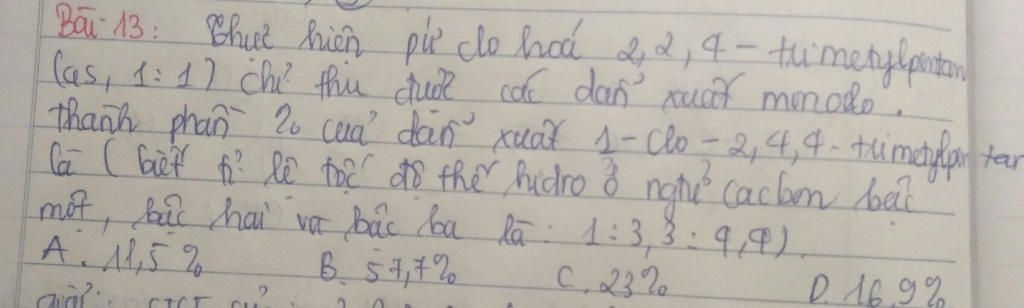 Bài 13: Thực hiện pứ clo hoá 2,2,4 - trimetylpentan
(as, 1:1) chỉ thu được các dẫn xuất monoclo.
Thành phần % của dẫn xuất 1-clo-2,4,4-trimetylpentan
là (biết tỉ lệ tốc độ thế hidro ở nguyên tử cacbon bậc
một, bậc hai và bậc ba là: 1:3,3:4,4).
A. 11,5% B. 57,7% C. 23% D. 16,9%
giải: CTCT